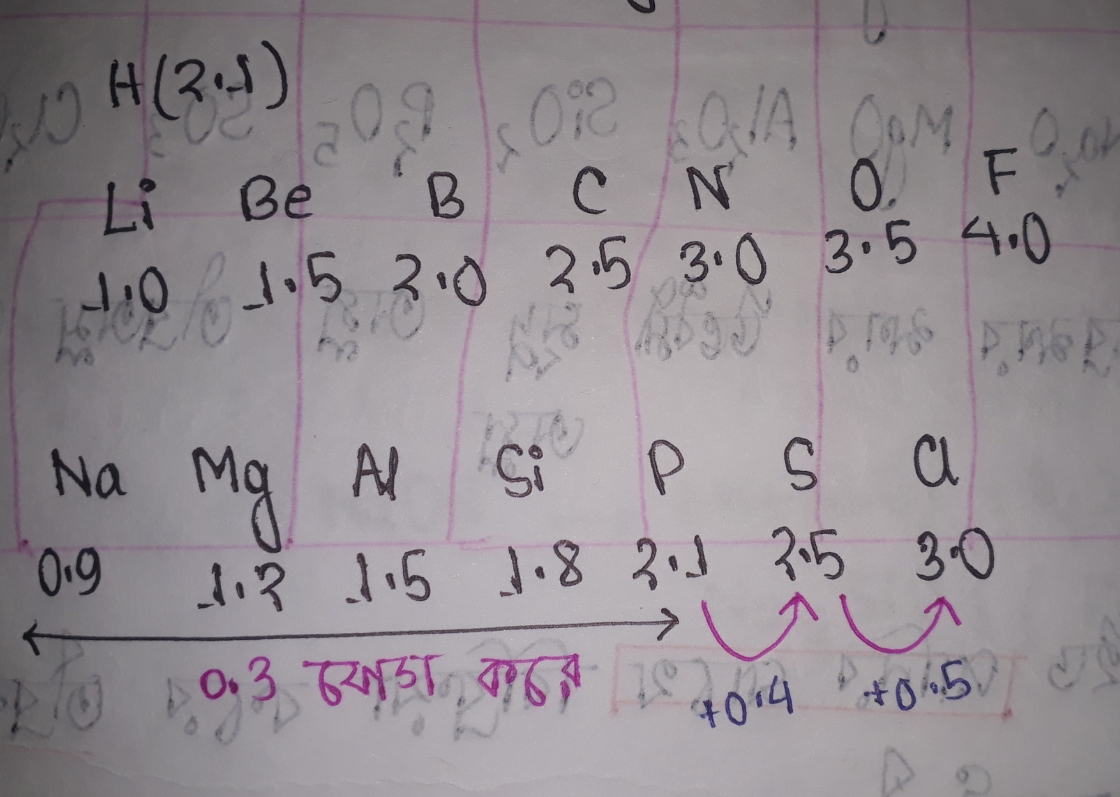 H(2.1)
Li Be B C N O F
1.0 1.5 2.0 2.5 3.0 3.5 4.0
Na Mg Al Si P S Cl
0.9 1.2 1.5 1.8 2.1 2.5 3.0
0.3 যোগ করে +0.4 +0.5